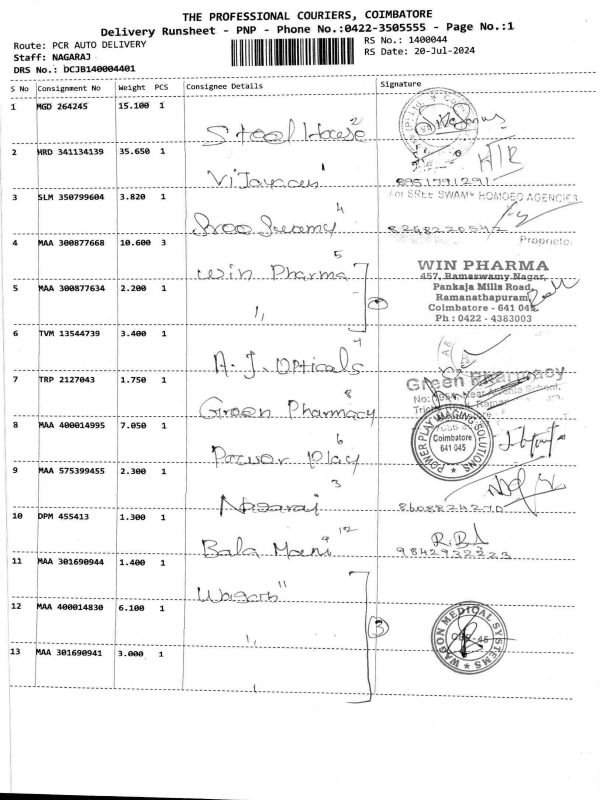 THE PROFESSIONAL COURIERS, COIMBATORE
Delivery Runsheet - PNP - Phone No.:0422-3505555 - Page No.:1
Route: PCR AUTO DELIVERY
RS No.: 1400044
Staff: NAGARAJ
RS Date: 20-Jul-2024
DRS No.: DCJB140004401
S No Consignment No Weight PCS Consignee Details Signature
1 MGD 264245 15.100 1
Steel House 2
2 HRD 341134139 35.650 1
3 SLM 350799604 3.820 1
For SREE SWAMY HOMOEO AGENCIES
Sree Swamy 4
Proprietor
4 MAA 300877668 10.600 3
Win Pharma 5
WIN PHARMA
457, Ramaswamy Nagar,
Pankaja Mills Road,
Ramanathapuram,
Coimbatore - 641 045.
Ph : 0422 - 4383003
5 MAA 300877634 2.200 1
6 TVM 13544739 3.400 1
A. J. Opticals 4
7 TRP 2127043 1.750 1
Green Pharmacy
Green Pharmacy 8
8 MAA 400014995 7.050 1
POWER PLAY IMAGING SOLUTIONS
Coimbatore
641 045
Power Play 6
9 MAA 575399455 2.300 1
Nagaraj 3
8608824270
10 DPM 455413 1.300 1
Bala Mani 9 12
9842922223
11 MAA 301690944 1.400 1
11
12 MAA 400014830 6.100 1
3
WAGON MEDICAL SYSTEMS
13 MAA 301690941 3.000 1